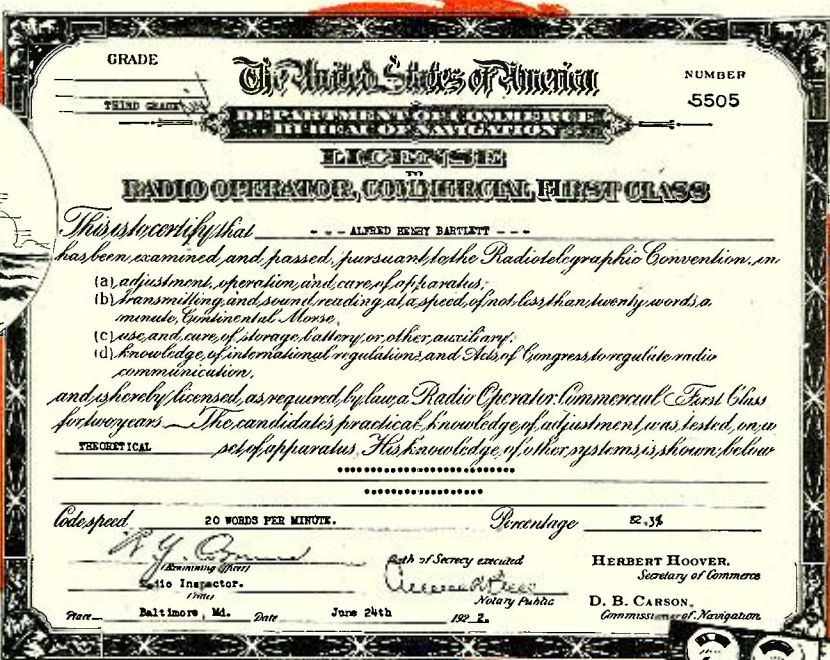 GRADE
THIRD GRADE
The United States of America
NUMBER
5505
DEPARTMENT OF COMMERCE
BUREAU OF NAVIGATION
LICENSE
TO
RADIO OPERATOR, COMMERCIAL FIRST CLASS
This is to certify that - - - ALFRED HENRY BARTLETT - - -
has been examined and passed, pursuant to the Radiotelegraphic Convention, in
(a) adjustment, operation, and care of apparatus;
(b) transmitting and sound reading at a speed of not less than twenty words a
minute, Continental Morse,
(c) use and care of storage battery or other auxiliary;
(d) knowledge of international regulations and Acts of Congress to regulate radio
communication,
and is hereby licensed, as required by law, a Radio Operator, Commercial First Class
for two years. The candidate's practical knowledge of adjustment was tested on a
THEORETICAL set of apparatus. His knowledge of other systems is shown below
Code speed 20 WORDS PER MINUTE. Percentage 82.3%
(Examining officer)
Radio Inspector.
(Title)
Oath of Secrecy executed
Notary Public
HERBERT HOOVER,
Secretary of Commerce
D. B. CARSON,
Commissioner of Navigation
Place Baltimore, Md. Date June 24th 192 2.